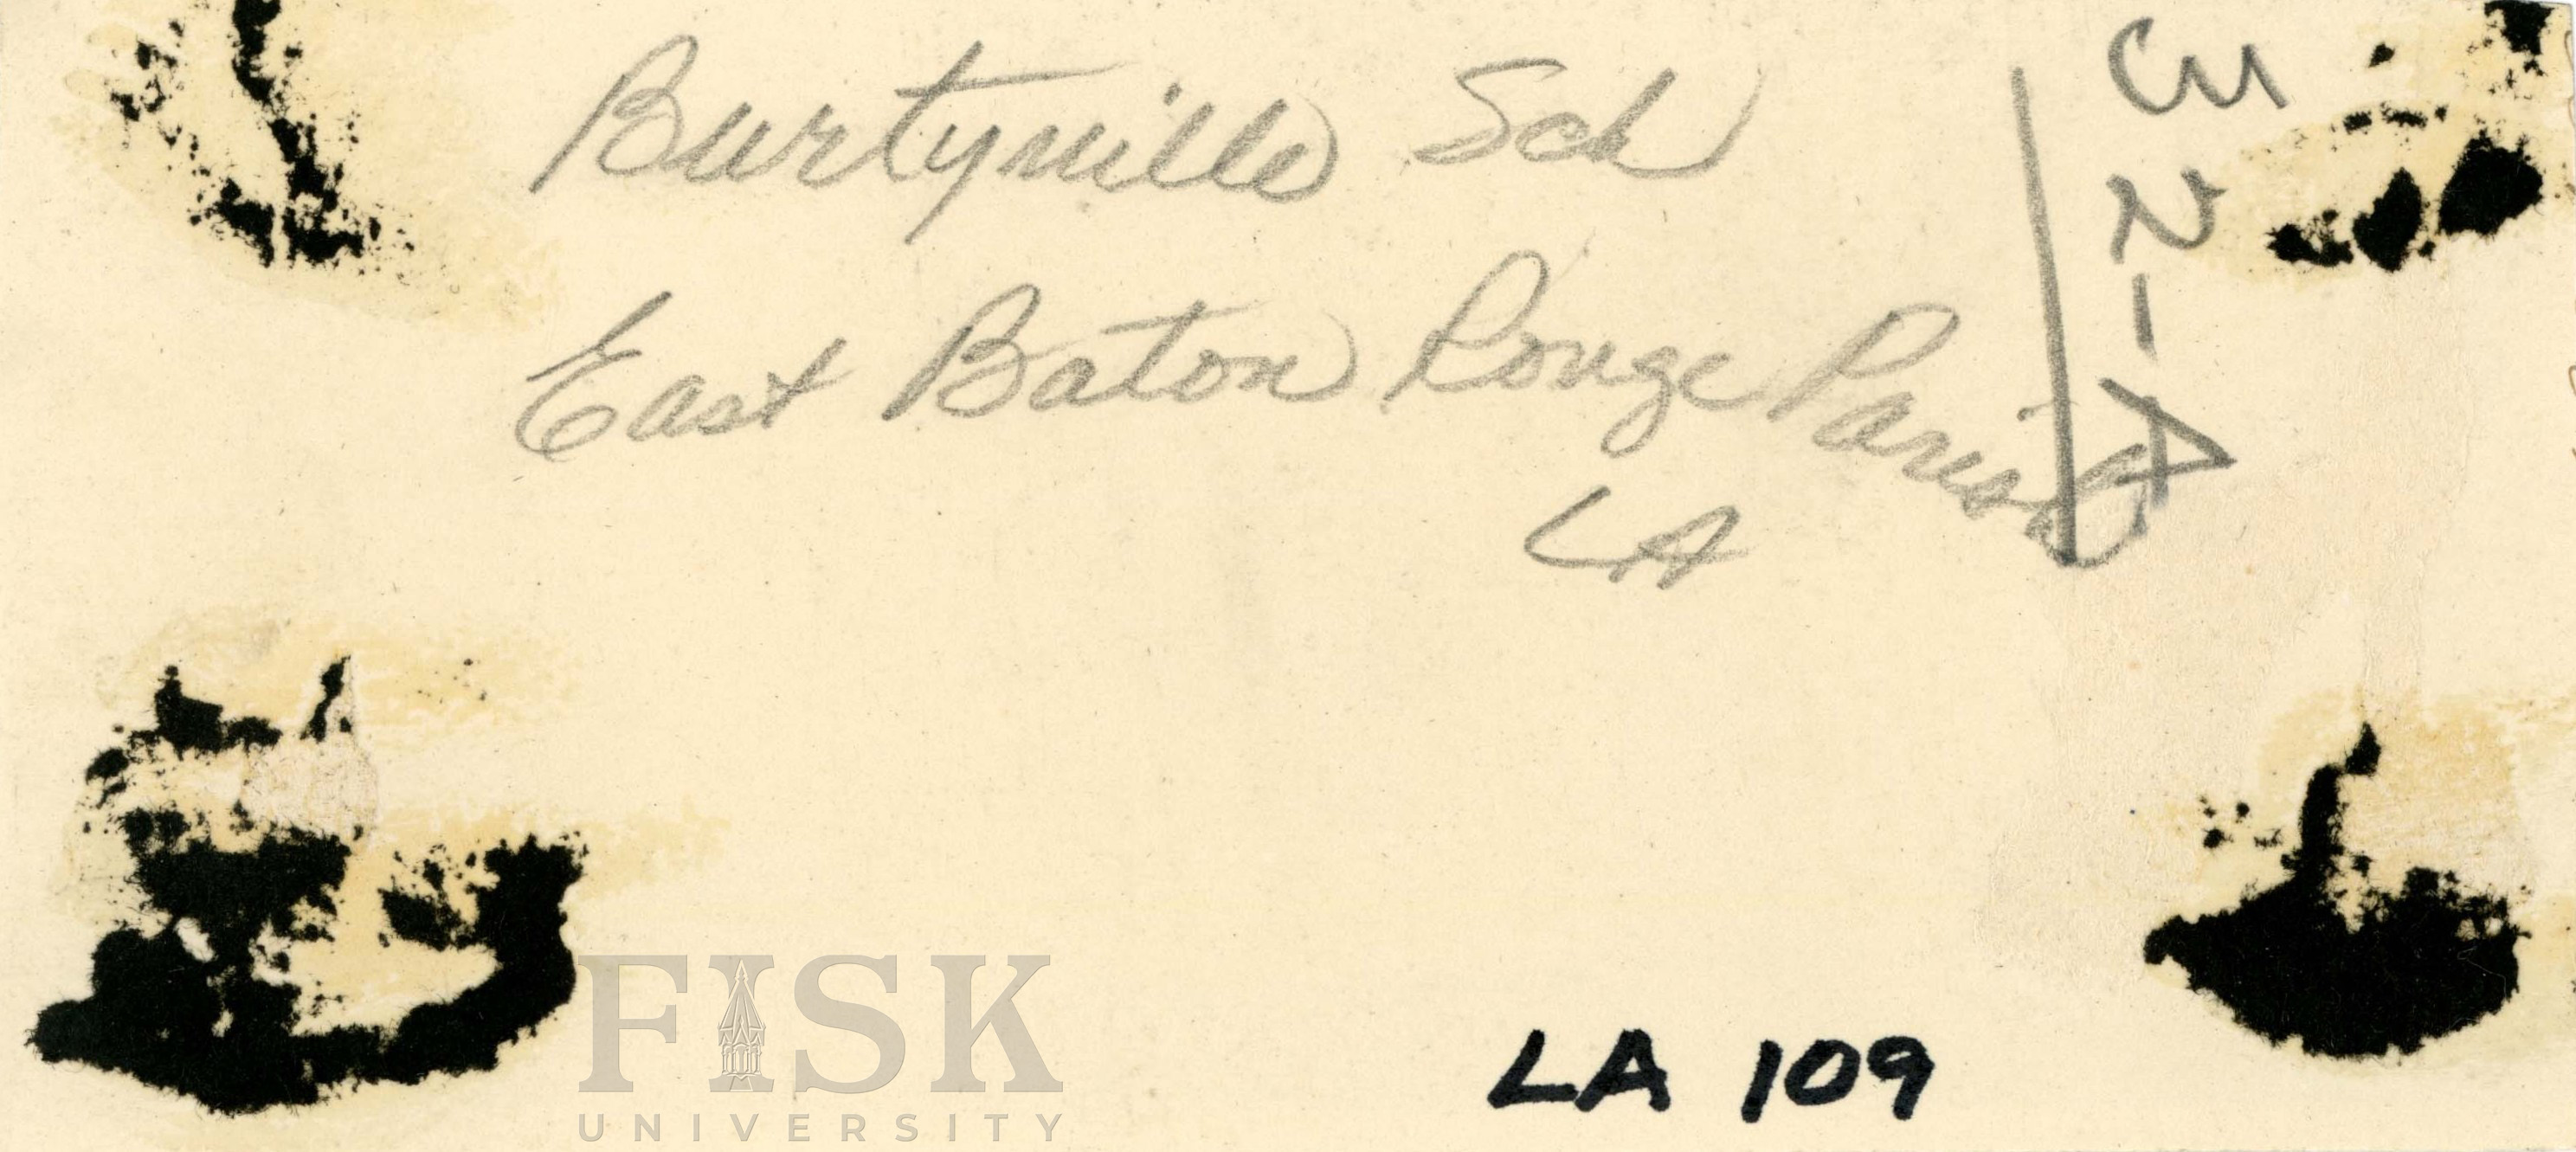 Burtyville Sch
East Baton Rouge Parish
LA
LA 109
FISK
UNIVERSITY